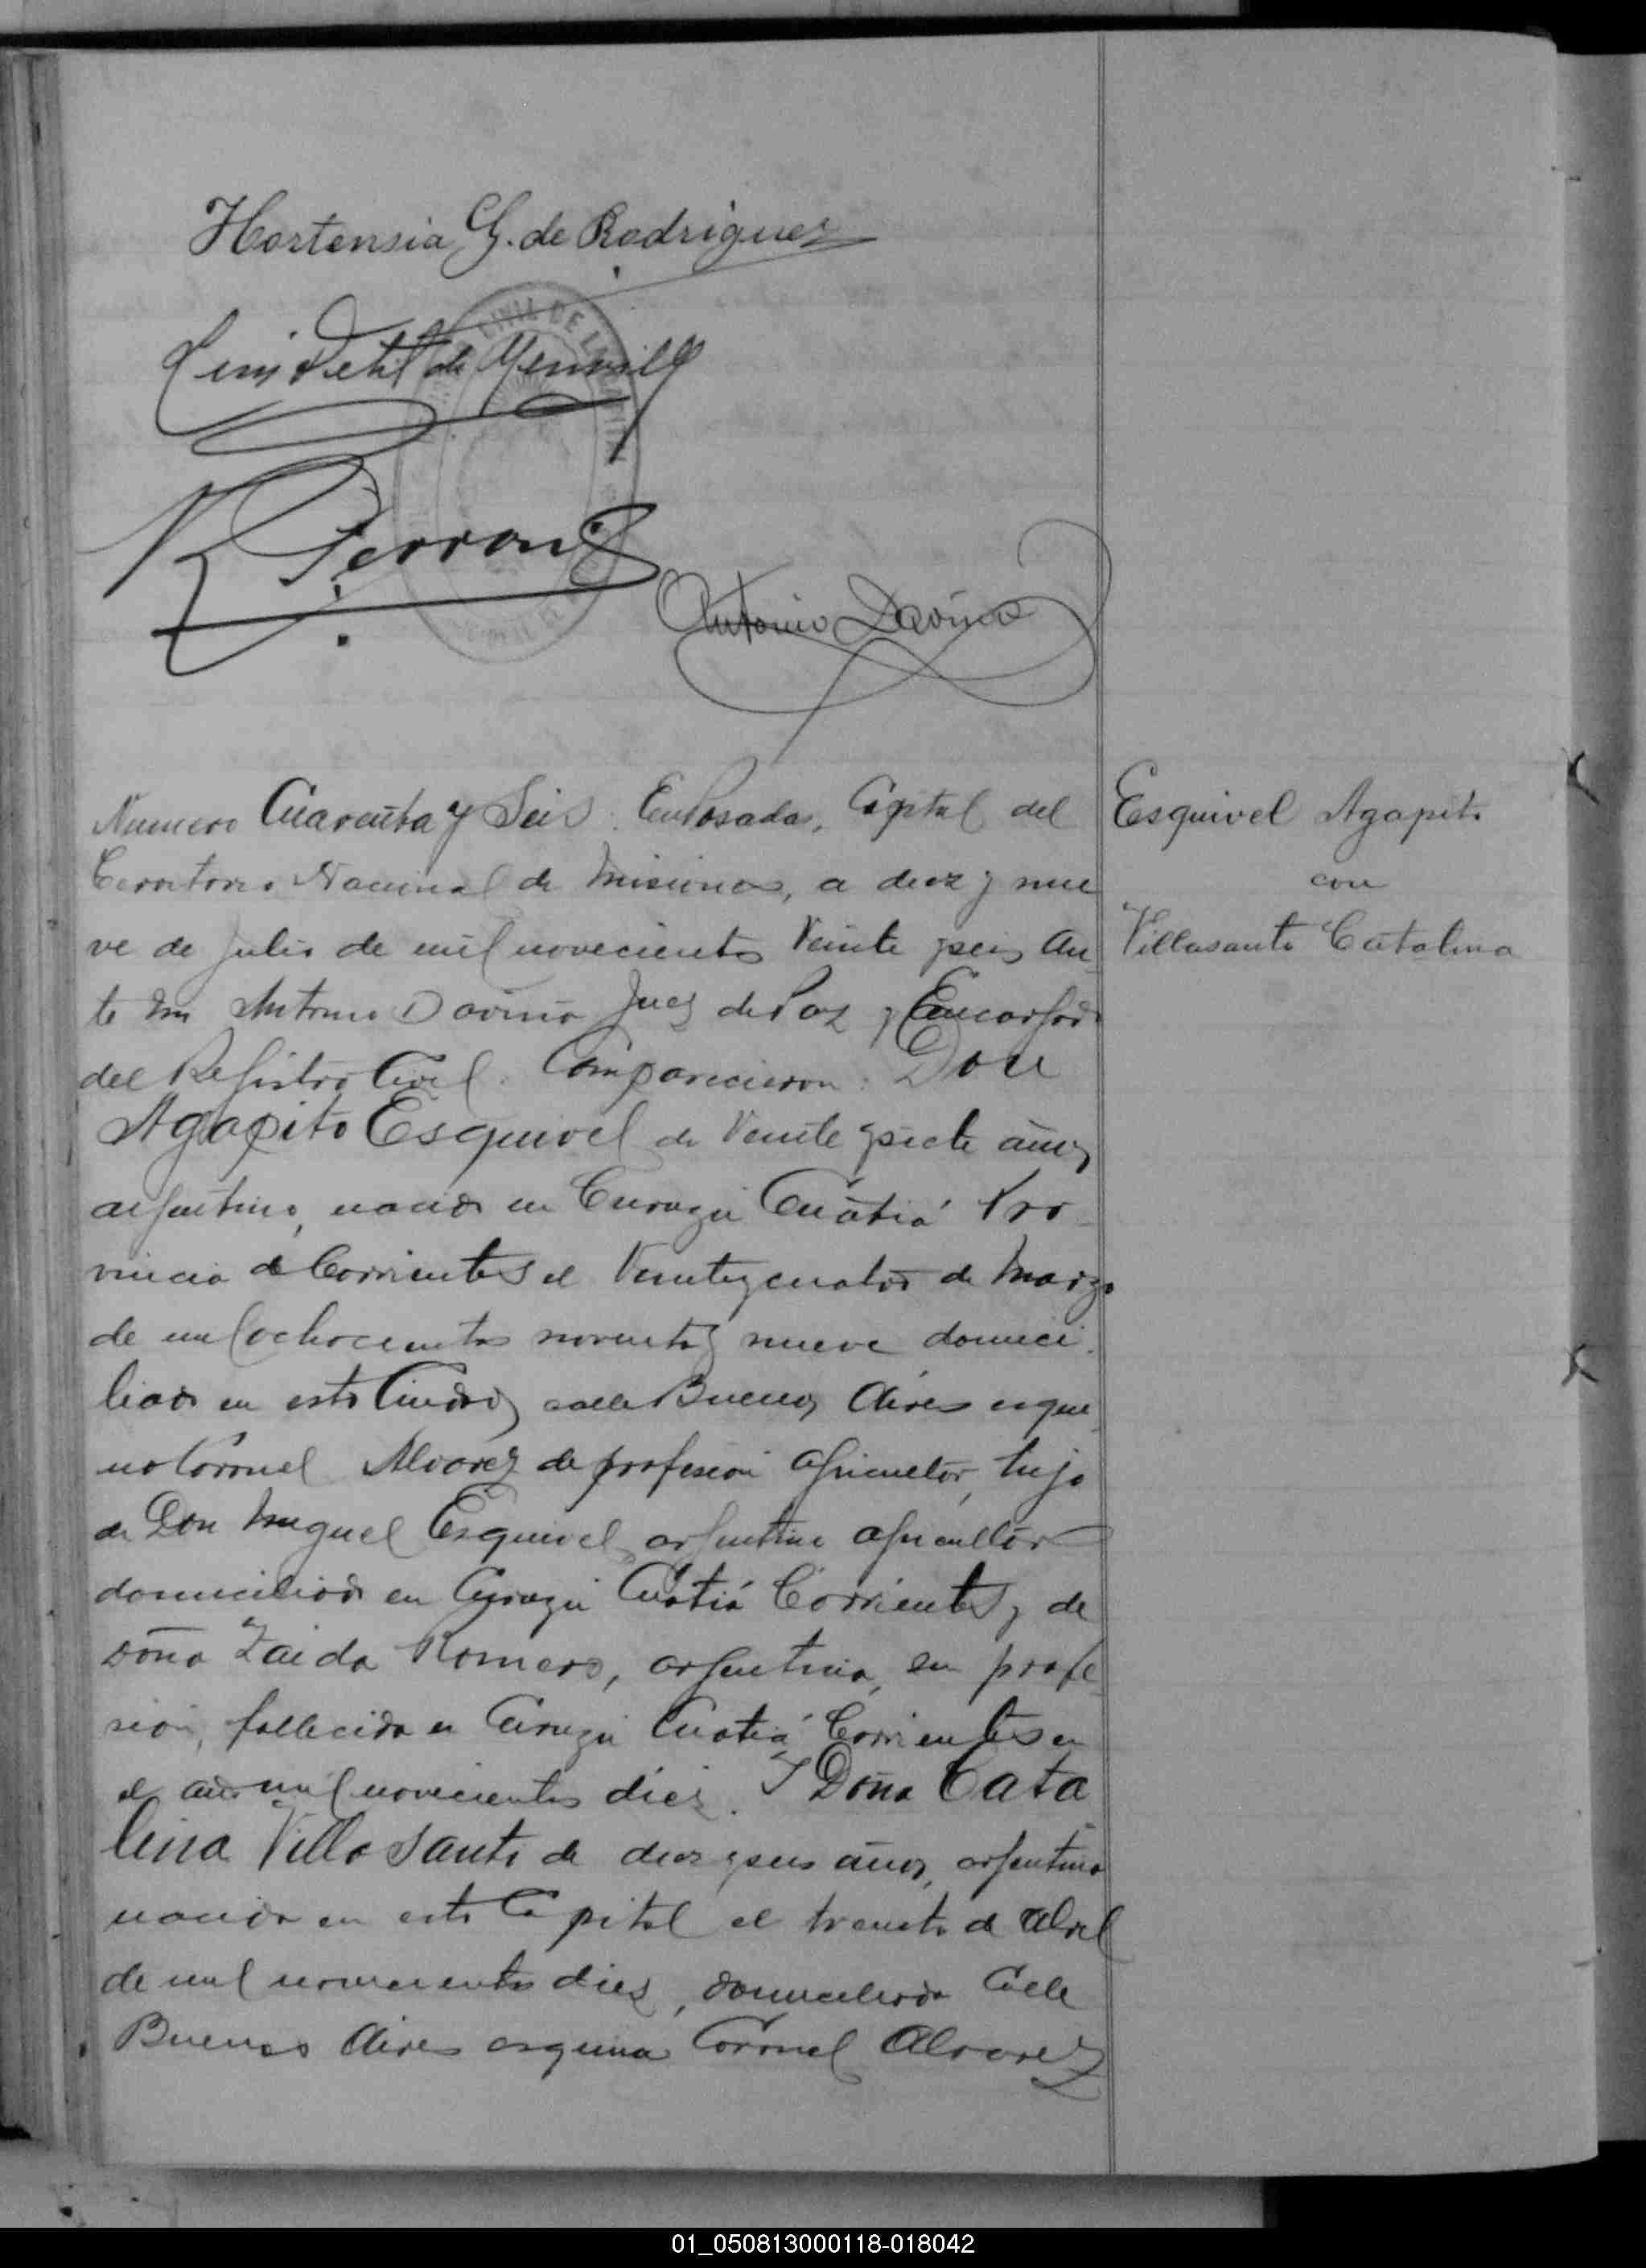 Hortensia G. de Rodriguez
Luis Petit de
CIVIL DE LA
R. Ferrons
Antonio Daviña
Numero Cuarenta y Seis. En Posadas, Capital del
Esquivel Agapito
Territorio Nacional de Misiones, a diez y nue
con
ve de Julio de mil novecientos veinte y seis an
Villasanti Catalina
te mi Antonio Daviña Juez de Paz y Encargado
del Registro Civil. Comparecieron: Don
Agapito Esquivel de veinte y siete años
argentino, nacido en Curuzú Cuatiá Pro-
vincia de Corrientes el veinte y cuatro de Marzo
de mil ochocientos noventa y nueve domici-
liado en esta Ciudad calle Buenos Aires esqui
na Coronel Alvarez de profesión agricultor, hijo
de Don Miguel Esquivel argentino agricultor
domiciliado en Curuzú Cuatiá Corrientes y de
Doña Zaida Romero, argentina, sin profe
sión, fallecida en Curuzú Cuatiá Corrientes en
el año mil novecientos diez. Y Doña Cata
lina Villa Santi de diez y seis años, argentina
nacida en esta Capital el treinta de Abril
de mil novecientos diez, domiciliada Calle
Buenos Aires esquina Coronel Alvarez
01_050813000118-018042